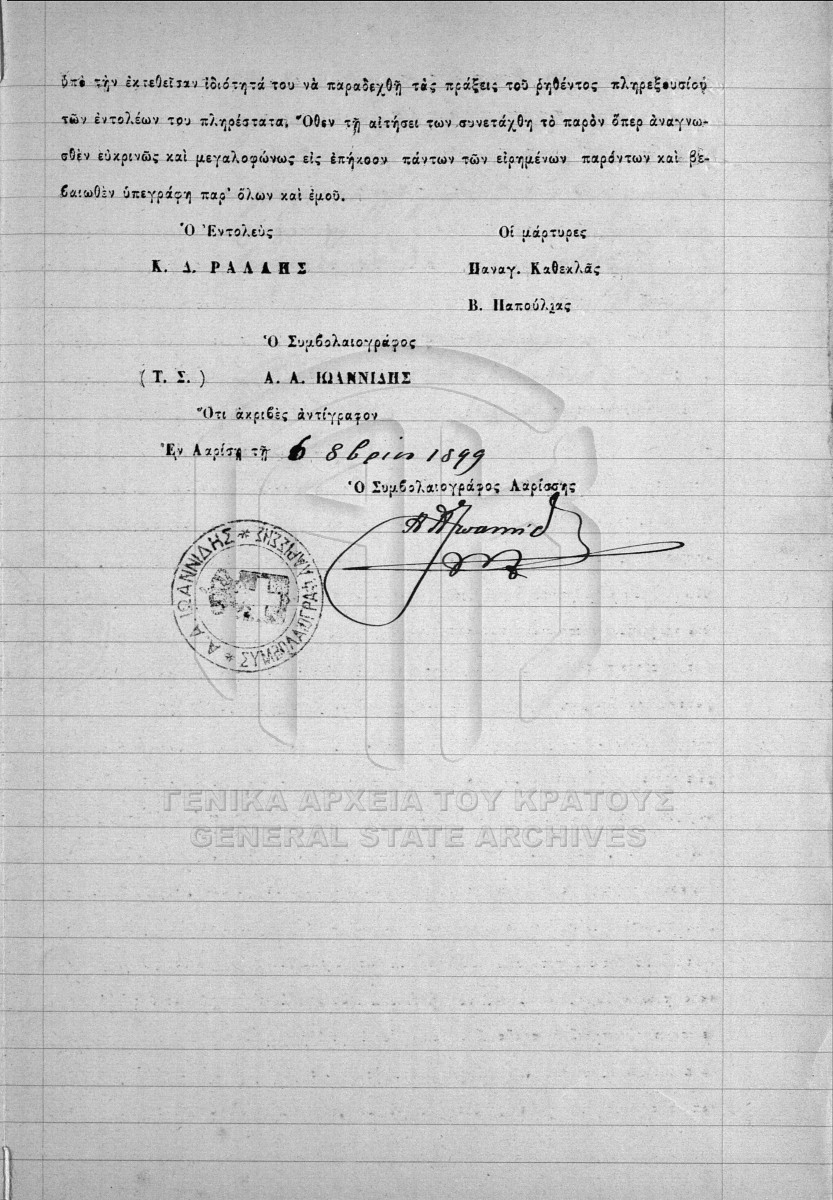 ὑπὸ τὴν ἐκτεθεῖσαν ἰδιότητά του νὰ παραδεχθῇ τὰς πράξεις τοῦ ῥηθέντος πληρεξουσίου
τῶν ἐντολέων του πληρέστατα, Ὅθεν τῇ αἰτήσει των συνετάχθη τὸ παρὸν ὅπερ ἀναγνω-
σθὲν εὐκρινῶς καὶ μεγαλοφώνως εἰς ἐπήκοον πάντων τῶν εἰρημένων παρόντων καὶ βε-
βαιωθὲν ὑπεγράφη παρ' ὅλων καὶ ἐμοῦ.
Ὁ Ἐντολεὺς
Οἱ μάρτυρες
Κ. Δ. ΡΑΛΛΗΣ
Παναγ. Καθεκλᾶς
Β. Παπούλιας
Ὁ Συμβολαιογράφος
(Τ. Σ.) Α. Α. ΙΩΑΝΝΙΔΗΣ
Ὅτι ἀκριβὲς ἀντίγραφον
Ἐν Λαρίσῃ τῇ 6 8βρίου 1899
Ὁ Συμβολαιογράφος Λαρίσσης
Α. Α. ΙΩΑΝΝΙΔΗΣ * ΣΥΜΒΟΛΑΙΟΓΡΑΦ. ΛΑΡΙΣΣΗΣ *
ΓΕΝΙΚΑ ΑΡΧΕΙΑ ΤΟΥ ΚΡΑΤΟΥΣ
GENERAL STATE ARCHIVES